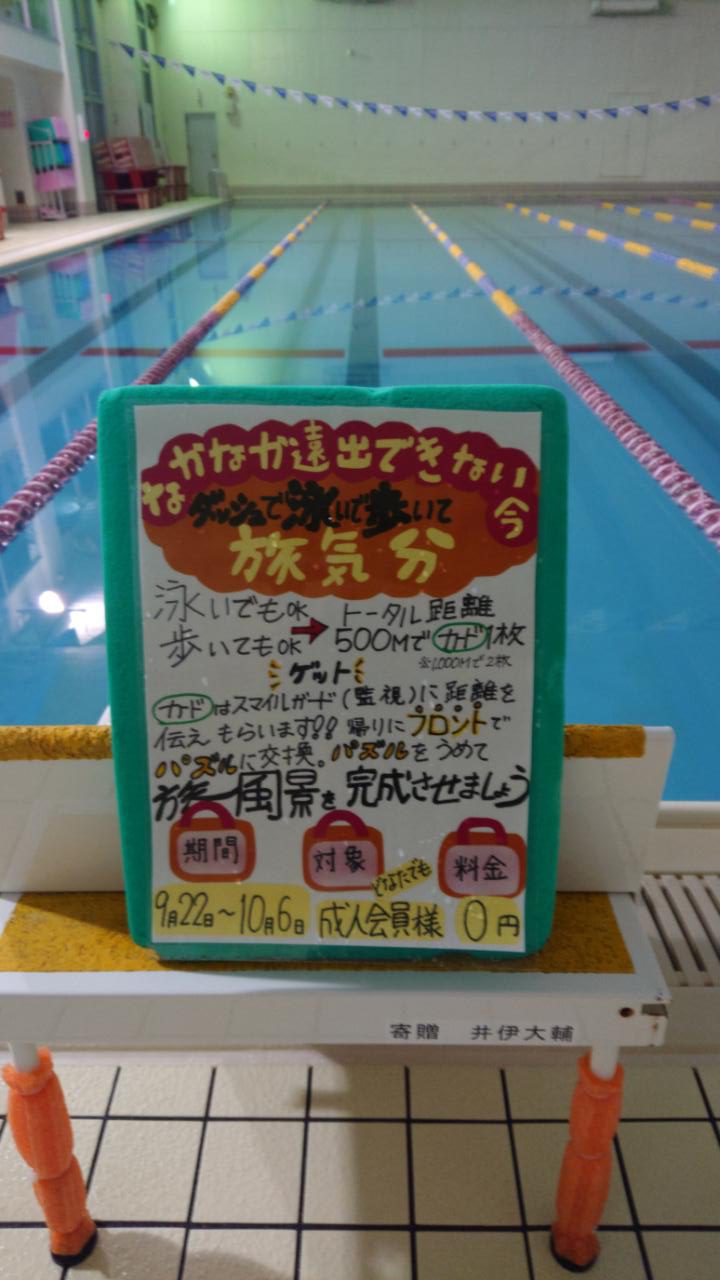 なかなか遠出できない今
ダッシュで泳いで歩いて
旅気分
泳いでもOK
歩いてもOK
→
トータル距離
500Mでカード1枚
※1,000Mで2枚
ゲット
カードはスマイルガード(監視)に距離を
伝えもらいます!! 帰りにフロントで
パズルに交換。パズルをうめて
旅風景を完成させましょう
期間
対象
どなたでも
料金
9月22日～10月6日
成人会員様
0円
寄贈 井伊大輔